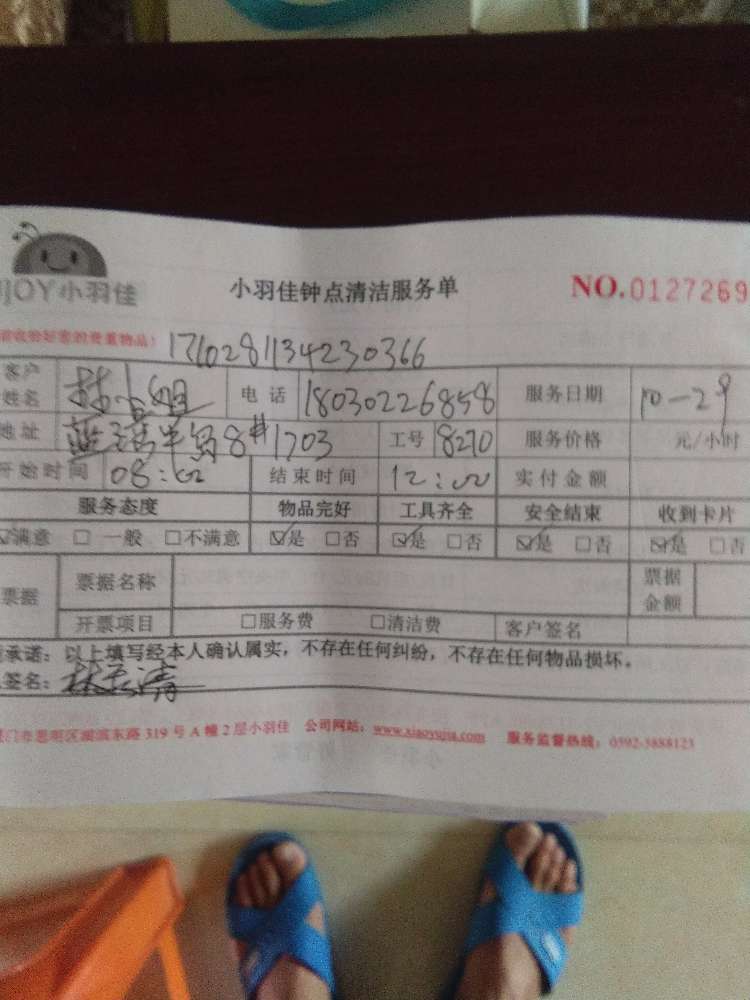 JOY小羽佳
小羽佳钟点清洁服务单
NO.0127269
请收验好您的贵重物品!
1710281134230366
客户姓名 林小姐 电话 18030226858 服务日期 10-29
地址 8#1703 工号 8270 服务价格 元/小时
开始时间 08:00 结束时间 12:00 实付金额
服务态度 物品完好 工具齐全 安全结束 收到卡片
☑满意 □一般 □不满意 ☑是 □否 ☑是 □否 ☑是 □否 ☑是 □否
票据 票据名称 票据金额
开票项目 □服务费 □清洁费 客户签名
承诺：以上填写经本人确认属实，不存在任何纠纷，不存在任何物品损坏。
签名：
门市思明区湖滨东路319号A幢2层小羽佳 公司网站：www.xiaoyujia.com 服务监督热线：0592-5888123